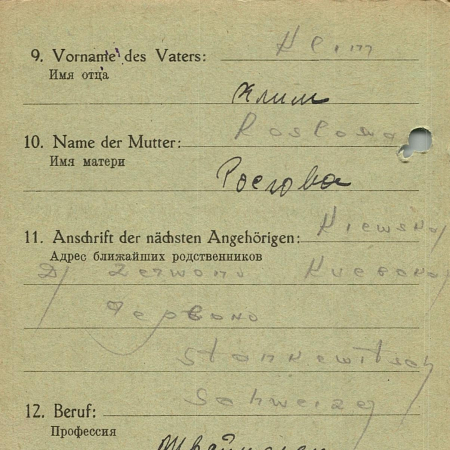 9. Vorname des Vaters: Klim
Имя отца
Клим
10. Name der Mutter: Roslowa
Имя матери
11. Anschrift der nächsten Angehörigen: Kiewskaj
Адрес ближайших родственников
Червоно
Stankewitsch
Schweizer
12. Beruf:
Профессия